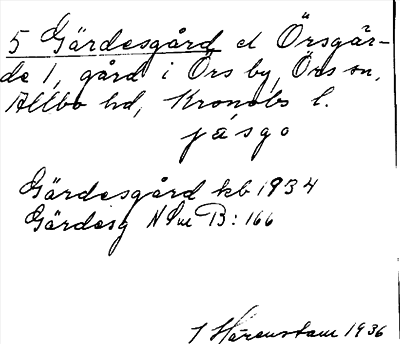 5 Gärdesgård el Örsgär-
de 1, gård i Örs by, Örs sn,
Allbo hd, Kronobs l.
jäsgo
Gärdesgård kb 1934
Gärdesg NSm B: 166
J Härenstam 1936